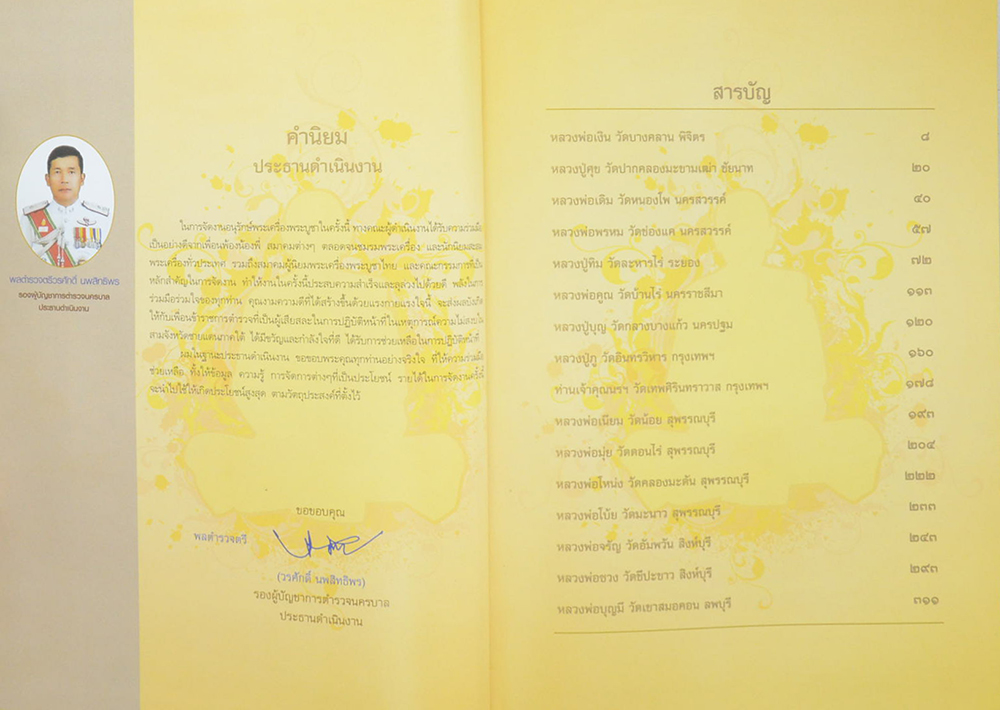 พลตำรวจตรีวรศักดิ์ นพสิทธิพร
รองผู้บัญชาการตำรวจนครบาล
ประธานดำเนินงาน
คำนิยม
ประธานดำเนินงาน
ในการจัดงานอนุรักษ์พระเครื่องพระบูชาในครั้งนี้ ทางคณะผู้ดำเนินงานได้รับความร่วมมือ
เป็นอย่างดีจากเพื่อนพ้องน้องพี่ สมาคมต่างๆ ตลอดจนชมรมพระเครื่อง และนักนิยมสะสม
พระเครื่องทั่วประเทศ รวมถึงสมาคมผู้นิยมพระเครื่องพระบูชาไทย และคณะกรรมการที่เป็น
หลักสำคัญในการจัดงาน ทำให้งานในครั้งนี้ประสบความสำเร็จและลุล่วงไปด้วยดี พลังในการ
ร่วมมือร่วมใจของทุกท่าน คุณงามความดีที่ได้สร้างขึ้นด้วยแรงกายแรงใจนี้ จะส่งผลบังเกิด
ให้กับเพื่อนข้าราชการตำรวจที่เป็นผู้เสียสละในการปฏิบัติหน้าที่ในเหตุการณ์ความไม่สงบใน
สามจังหวัดชายแดนภาคใต้ ได้มีขวัญและกำลังใจที่ดี ได้รับการช่วยเหลือในการปฏิบัติหน้าที่
ผมในฐานะประธานดำเนินงาน ขอขอบพระคุณทุกท่านอย่างจริงใจ ที่ให้ความร่วมมือ
ช่วยเหลือ ทั้งให้ข้อมูล ความรู้ การจัดการต่างๆที่เป็นประโยชน์ รายได้ในการจัดงานครั้งนี้
จะนำไปใช้ให้เกิดประโยชน์สูงสุด ตามวัตถุประสงค์ที่ตั้งไว้
ขอขอบคุณ
พลตำรวจตรี
(วรศักดิ์ นพสิทธิพร)
รองผู้บัญชาการตำรวจนครบาล
ประธานดำเนินงาน
สารบัญ
หลวงพ่อเงิน วัดบางคลาน พิจิตร ๘
หลวงปู่ศุข วัดปากคลองมะขามเฒ่า ชัยนาท ๒๐
หลวงพ่อเดิม วัดหนองโพ นครสวรรค์ ๔๐
หลวงพ่อพรหม วัดช่องแค นครสวรรค์ ๕๗
หลวงปู่ทิม วัดละหารไร่ ระยอง ๗๒
หลวงพ่อคูณ วัดบ้านไร่ นครราชสีมา ๑๑๓
หลวงปู่บุญ วัดกลางบางแก้ว นครปฐม ๑๒๐
หลวงปู่ภู วัดอินทรวิหาร กรุงเทพฯ ๑๖๐
ท่านเจ้าคุณนรฯ วัดเทพศิรินทราวาส กรุงเทพฯ ๑๗๘
หลวงพ่อเนียม วัดน้อย สุพรรณบุรี ๑๙๓
หลวงพ่อมุ่ย วัดดอนไร่ สุพรรณบุรี ๒๐๔
หลวงพ่อโหน่ง วัดคลองมะดัน สุพรรณบุรี ๒๒๒
หลวงพ่อโบ้ย วัดมะนาว สุพรรณบุรี ๒๓๓
หลวงพ่อจรัญ วัดอัมพวัน สิงห์บุรี ๒๔๓
หลวงพ่อซวง วัดชีปะขาว สิงห์บุรี ๒๙๓
หลวงพ่อบุญมี วัดเขาสมอคอน ลพบุรี ๓๑๑